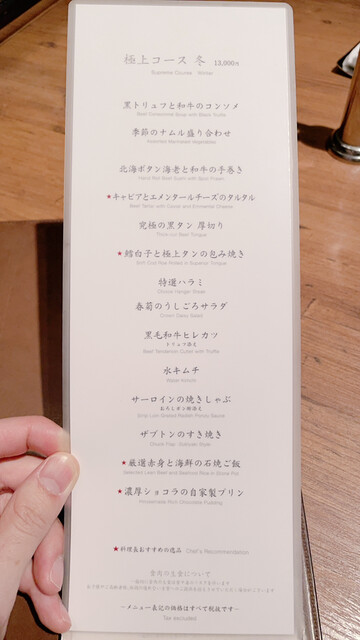 極上コース 冬 13,000円
Supreme Course Winter
黒トリュフと和牛のコンソメ
Beef Consommé Soup with Black Truffle
季節のナムル盛り合わせ
Assorted Marinated Vegetables
北海ボタン海老と和牛の手巻き
Hand Roll Beef Sushi with Boton Prawn
★キャビアとエメンタールチーズのタルタル
Beef Tartar with Caviar and Emmental Cheese
究極の黒タン 厚切り
Thick-cut Beef Tongue
★鱈白子と極上タンの包み焼き
Soft Cod Roe Rolled in Superior Tongue
特選ハラミ
Choice Hanger Steak
春菊のうしごろサラダ
Crown Daisy Salad
黒毛和牛ヒレカツ
トリュフ添え
Beef Tenderloin Cutlet with Truffle
水キムチ
Water Kimchi
サーロインの焼きしゃぶ
おろしポン酢添え
Strip Loin Grated Radish Ponzu Sauce
ザブトンのすき焼き
Chuck Flap Sukiyaki Style
★厳選赤身と海鮮の石焼ご飯
Selected Lean Beef and Seafood Rice in Stone Pot
★濃厚ショコラの自家製プリン
Homemade Rich Chocolate Pudding
★料理長おすすめの逸品 Chef's Recommendation
食肉の生食について
～メニュー表記の価格はすべて税抜です～
Tax excluded